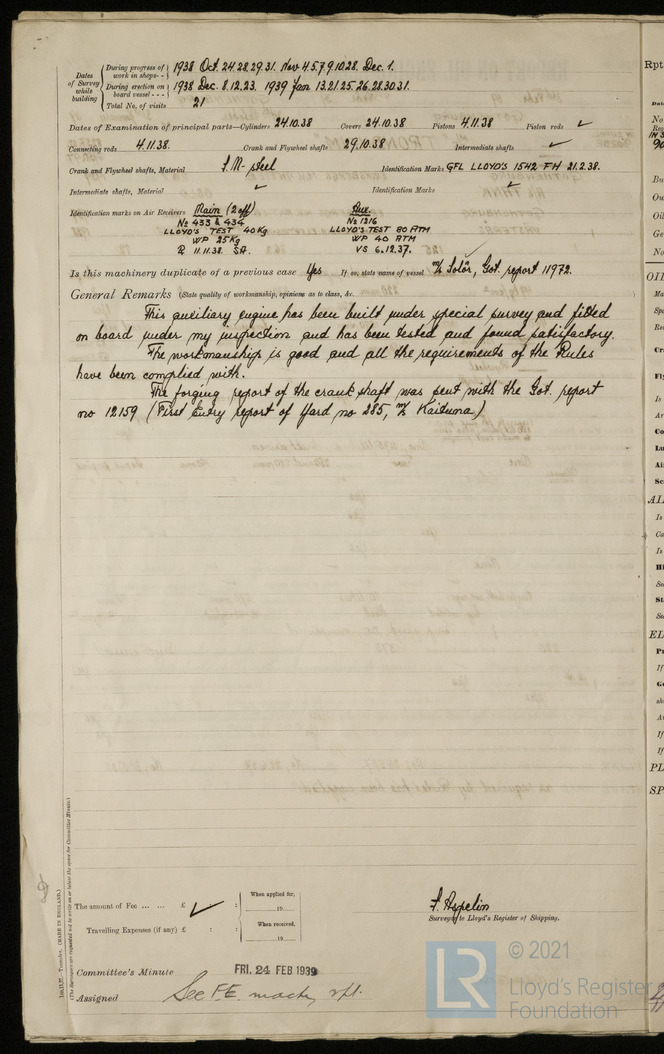 Dates of Survey while building
During progress of work in shops - - 1938 Oct. 24.28.29.31. Nov 4.5.7.9.10.28. Dec. 1.
During erection on board vessel - - - 1938 Dec. 8.12.23. 1939 Jan 13.21.25.26.28.30.31.
Total No. of visits 21
Dates of Examination of principal parts—Cylinders 24.10.38 Covers 24.10.38 Pistons 4.11.38 Piston rods ✓
Connecting rods 4.11.38. Crank and Flywheel shafts 29.10.38 Intermediate shafts ✓
Crank and Flywheel shafts, Material S.M. steel Identification Marks GFL LLOYD'S 1542 FH 21.2.38.
Intermediate shafts, Material ✓ Identification Marks ✓
Identification marks on Air Receivers Main (2 off) Aux.
No 433 & 434 No 1216
LLOYD'S TEST 40 KG LLOYD'S TEST 80 ATM
WP 25 KG WP 40 ATM
R 11.11.38. SA. VS 6.12.37.
Is this machinery duplicate of a previous case Yes If so, state name of vessel m/s Solör, Got. report 11972.
General Remarks (State quality of workmanship, opinions as to class, &c.
This auxiliary engine has been built under special survey and fitted
on board under my inspection and has been tested and found satisfactory.
The workmanship is good and all the requirements of the Rules
have been complied with.
The forging report of the crank shaft was sent with the Got. report
no 12159 (First Entry report of Yard no 285, m/s Kaituna)
The amount of Fee ... ... £ ✓ :
When applied for,
19
Travelling Expenses (if any) £ : :
When received,
19
F. Aspelin
Surveyor to Lloyd's Register of Shipping.
Committee's Minute FRI. 24 FEB 1939
Assigned See F.E. machy rpt.
(MADE IN ENGLAND.)
(The Surveyors are requested not to write on or below the space for Committee Minute.)
LR
© 2021
Lloyd's Register
Foundation
Rpt